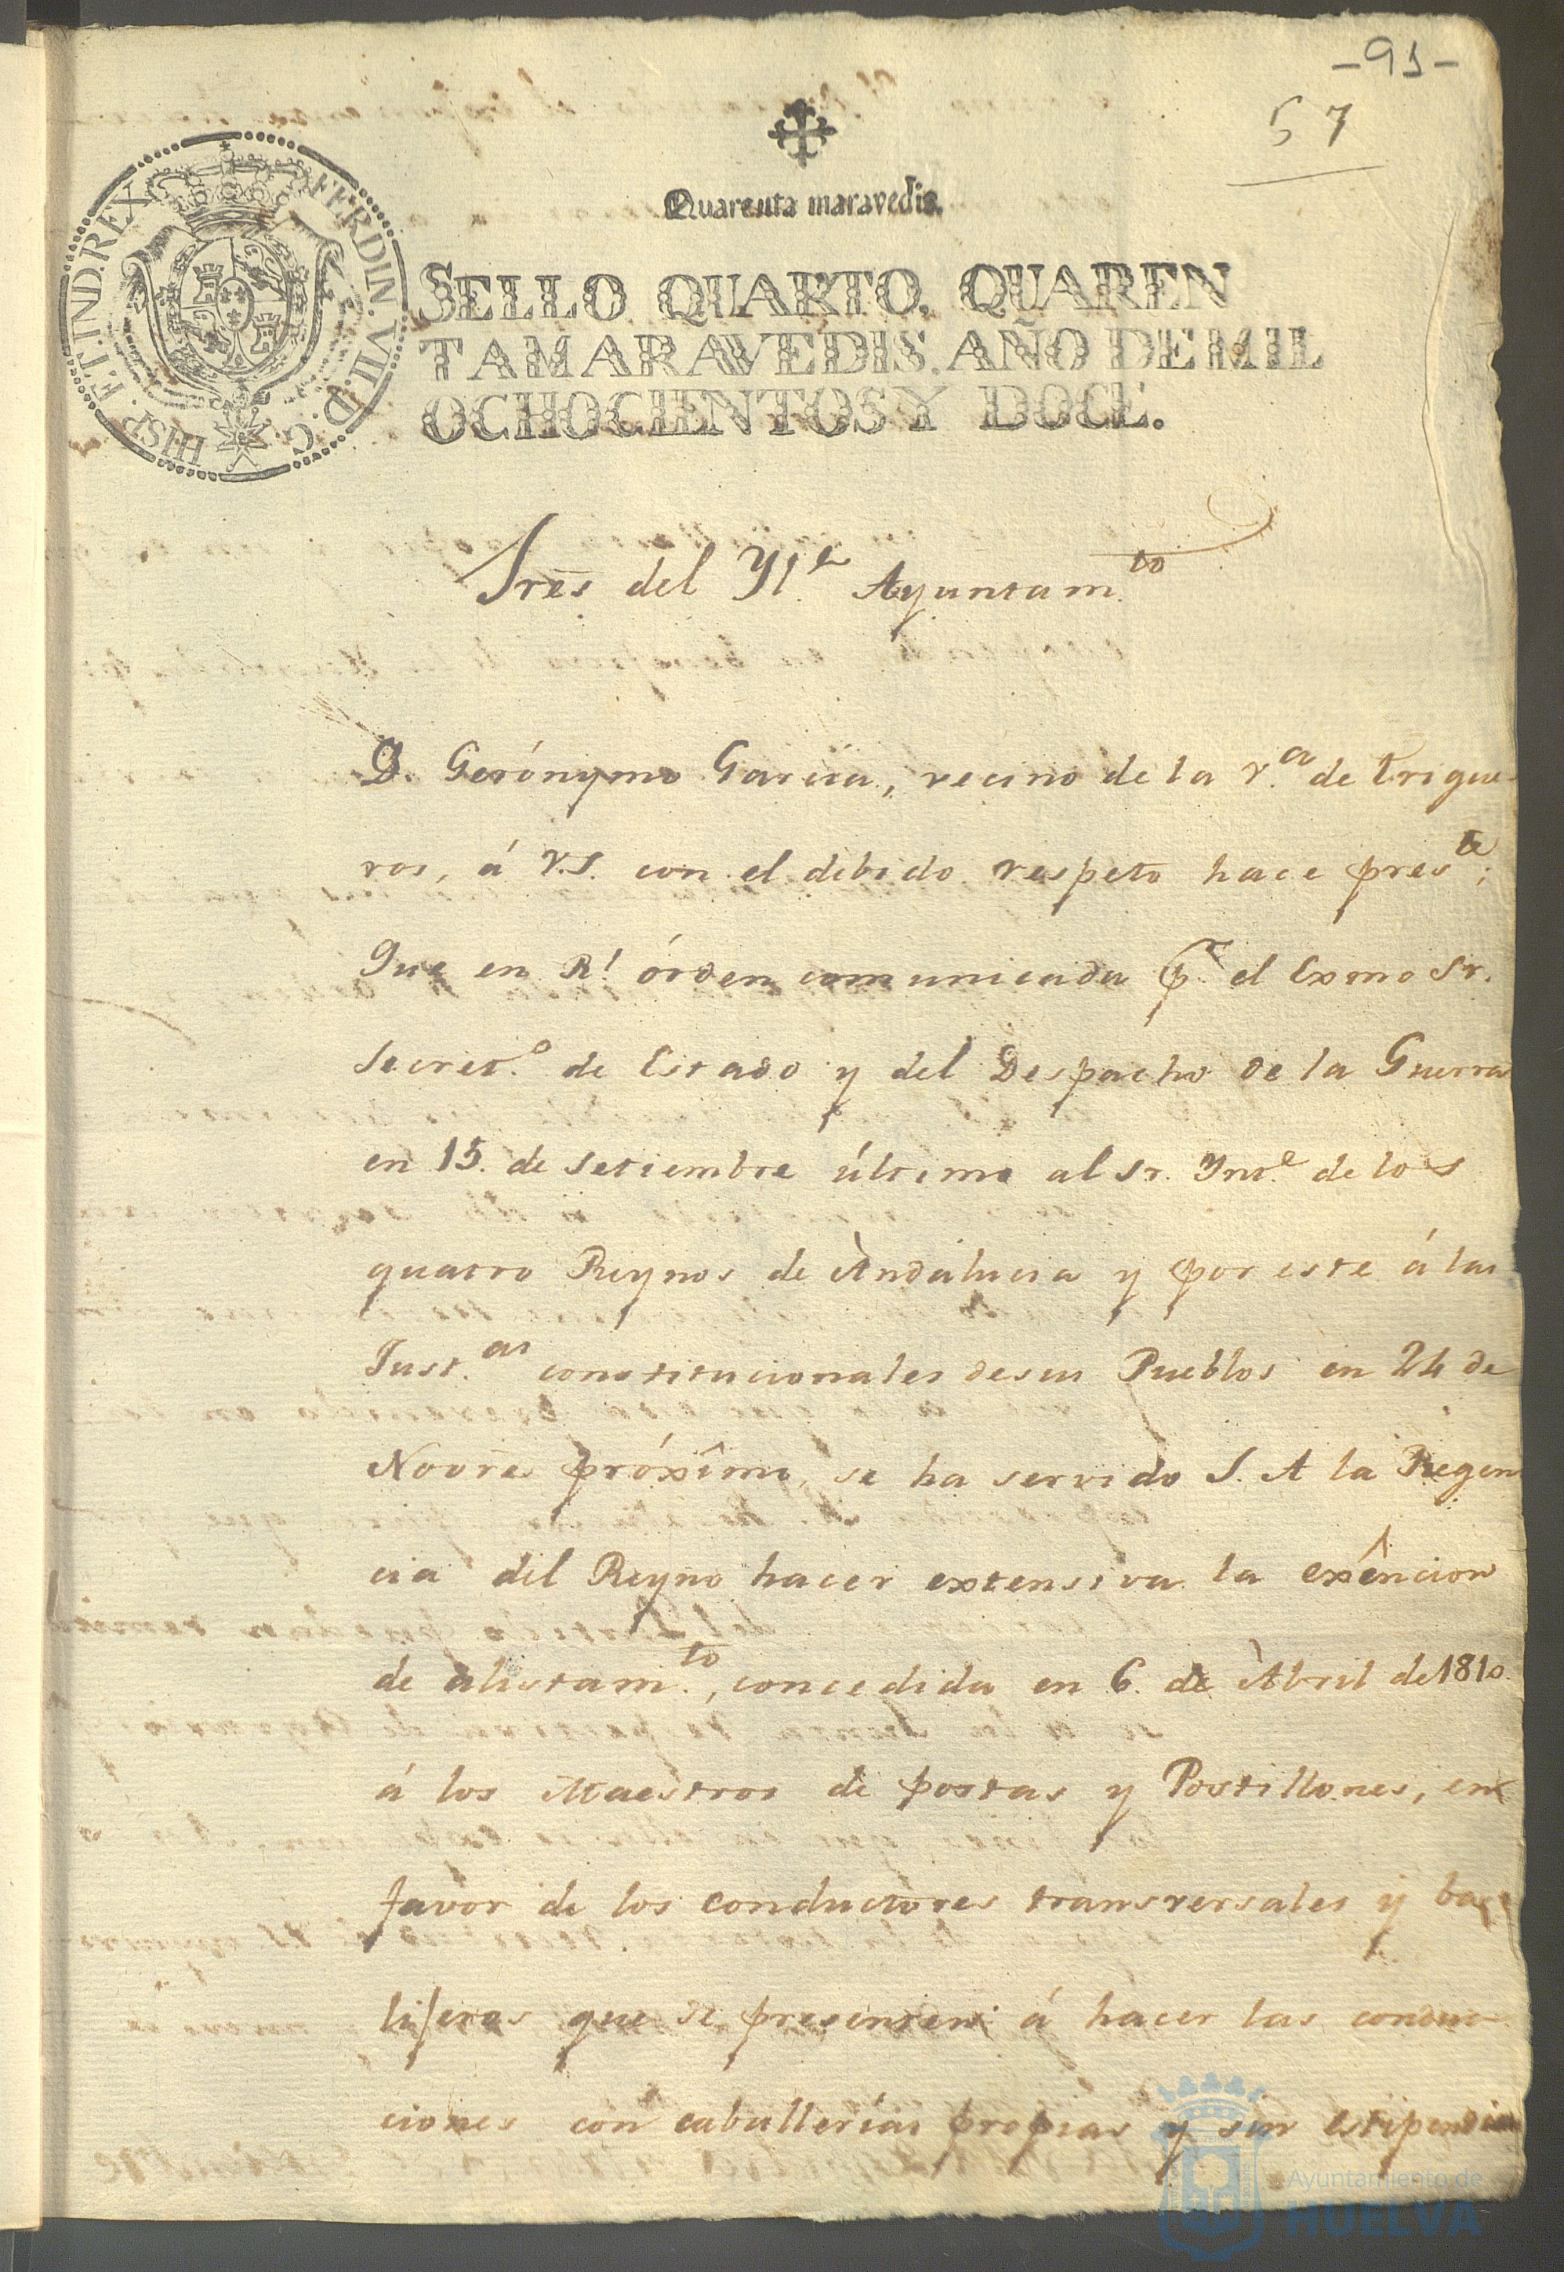 -91-
57
Quarenta maravedis.
SELLO QUARTO, QUAREN
TA MARAVEDIS, AÑO DE MIL
OCHOCIENTOS Y DOCE.
FERDIN. VII. D. G. HISP. ET. IND. REX
Sres del Yl.e Ayuntam.to
D. Gerónymo Garcia, vecino de la v.a de Trigue-
ros, á V.S. con el debido respeto hace pres.te;
Que en R.l órden comunicada p.r el Exmo Sr.
Secret.o de Estado y del Despacho de la Guerra
en 15. de Setiembre último al Sr. Ynt.e de los
quatro Reynos de Àndalucia y por este á las
Just.as constitucionales de sus Pueblos en 24 de
Novre próxîmo, se ha servido S. A la Regen
cia del Reyno hacer extensiva la exêncion
de alistam.to, concedida en 6. de Àbril de 1810.
á los Maestros de postas y Postillones, en
favor de los conductores transversales y ba
lijeros que se presenten á hacer las conduc-
ciones con caballerías propias y sin estipendio
Ayuntamiento de
HUELVA